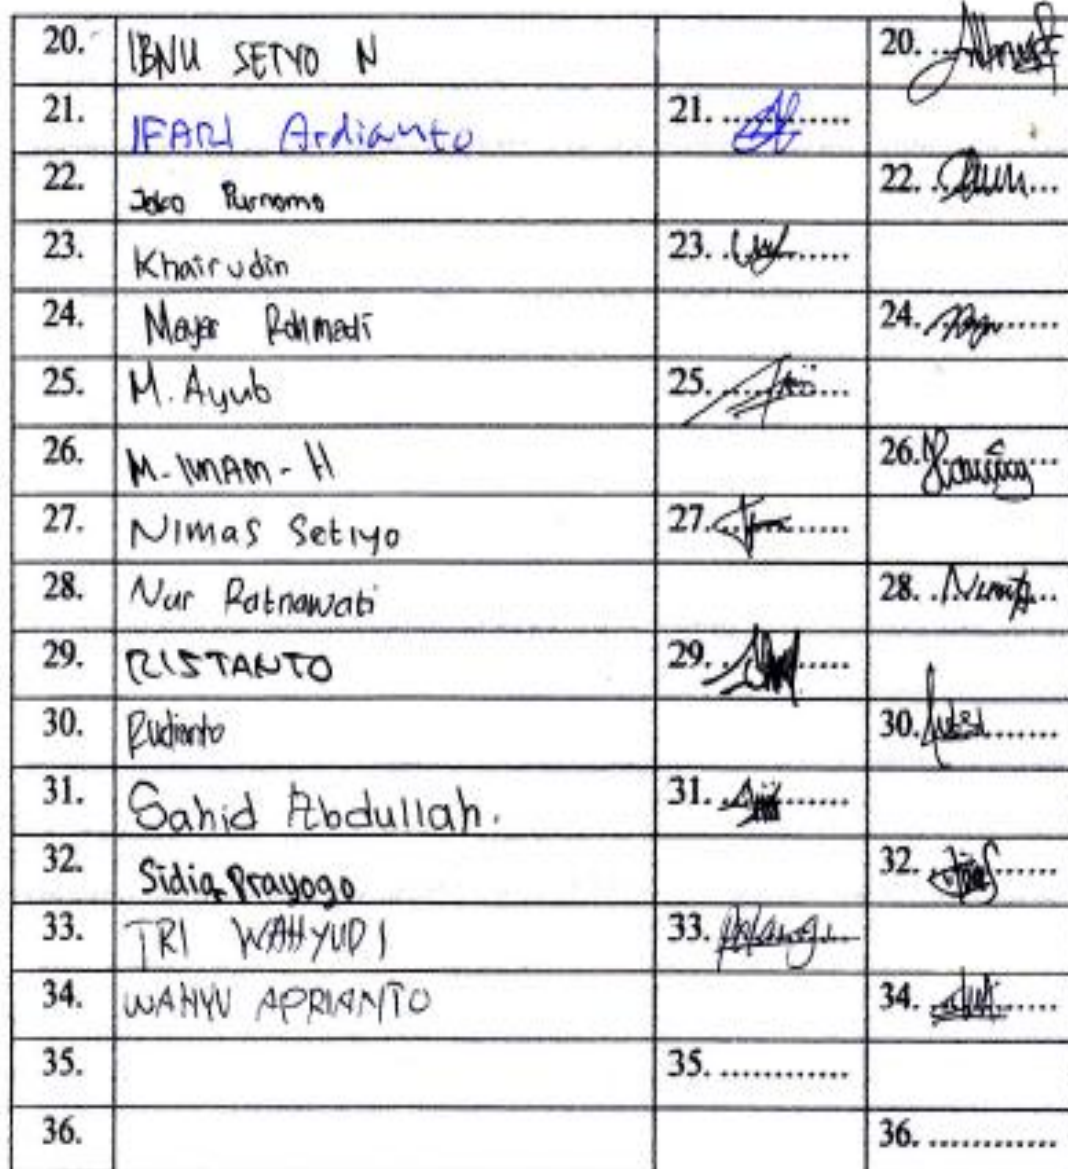 20. IBNU SETYO N 20.
21. IFARI Ardianto 21. ............
22. Joko Purnomo 22. ............
23. Khairudin 23. ............
24. Rohmadi 24. ............
25. M. Ayub 25. ............
26. M. IMAM - H 26. ............
27. NIMAS Setiyo 27. ............
28. Nur Ratnawati 28. ............
29. RISTANTO 29. ............
30. Rudianto 30. ............
31. Sahid Abdullah. 31. ............
32. Sidiq Prayogo 32. ............
33. TRI WAHYUDI 33. ............
34. WAHYU APRIANTO 34. ............
35. 35. ............
36. 36. ............